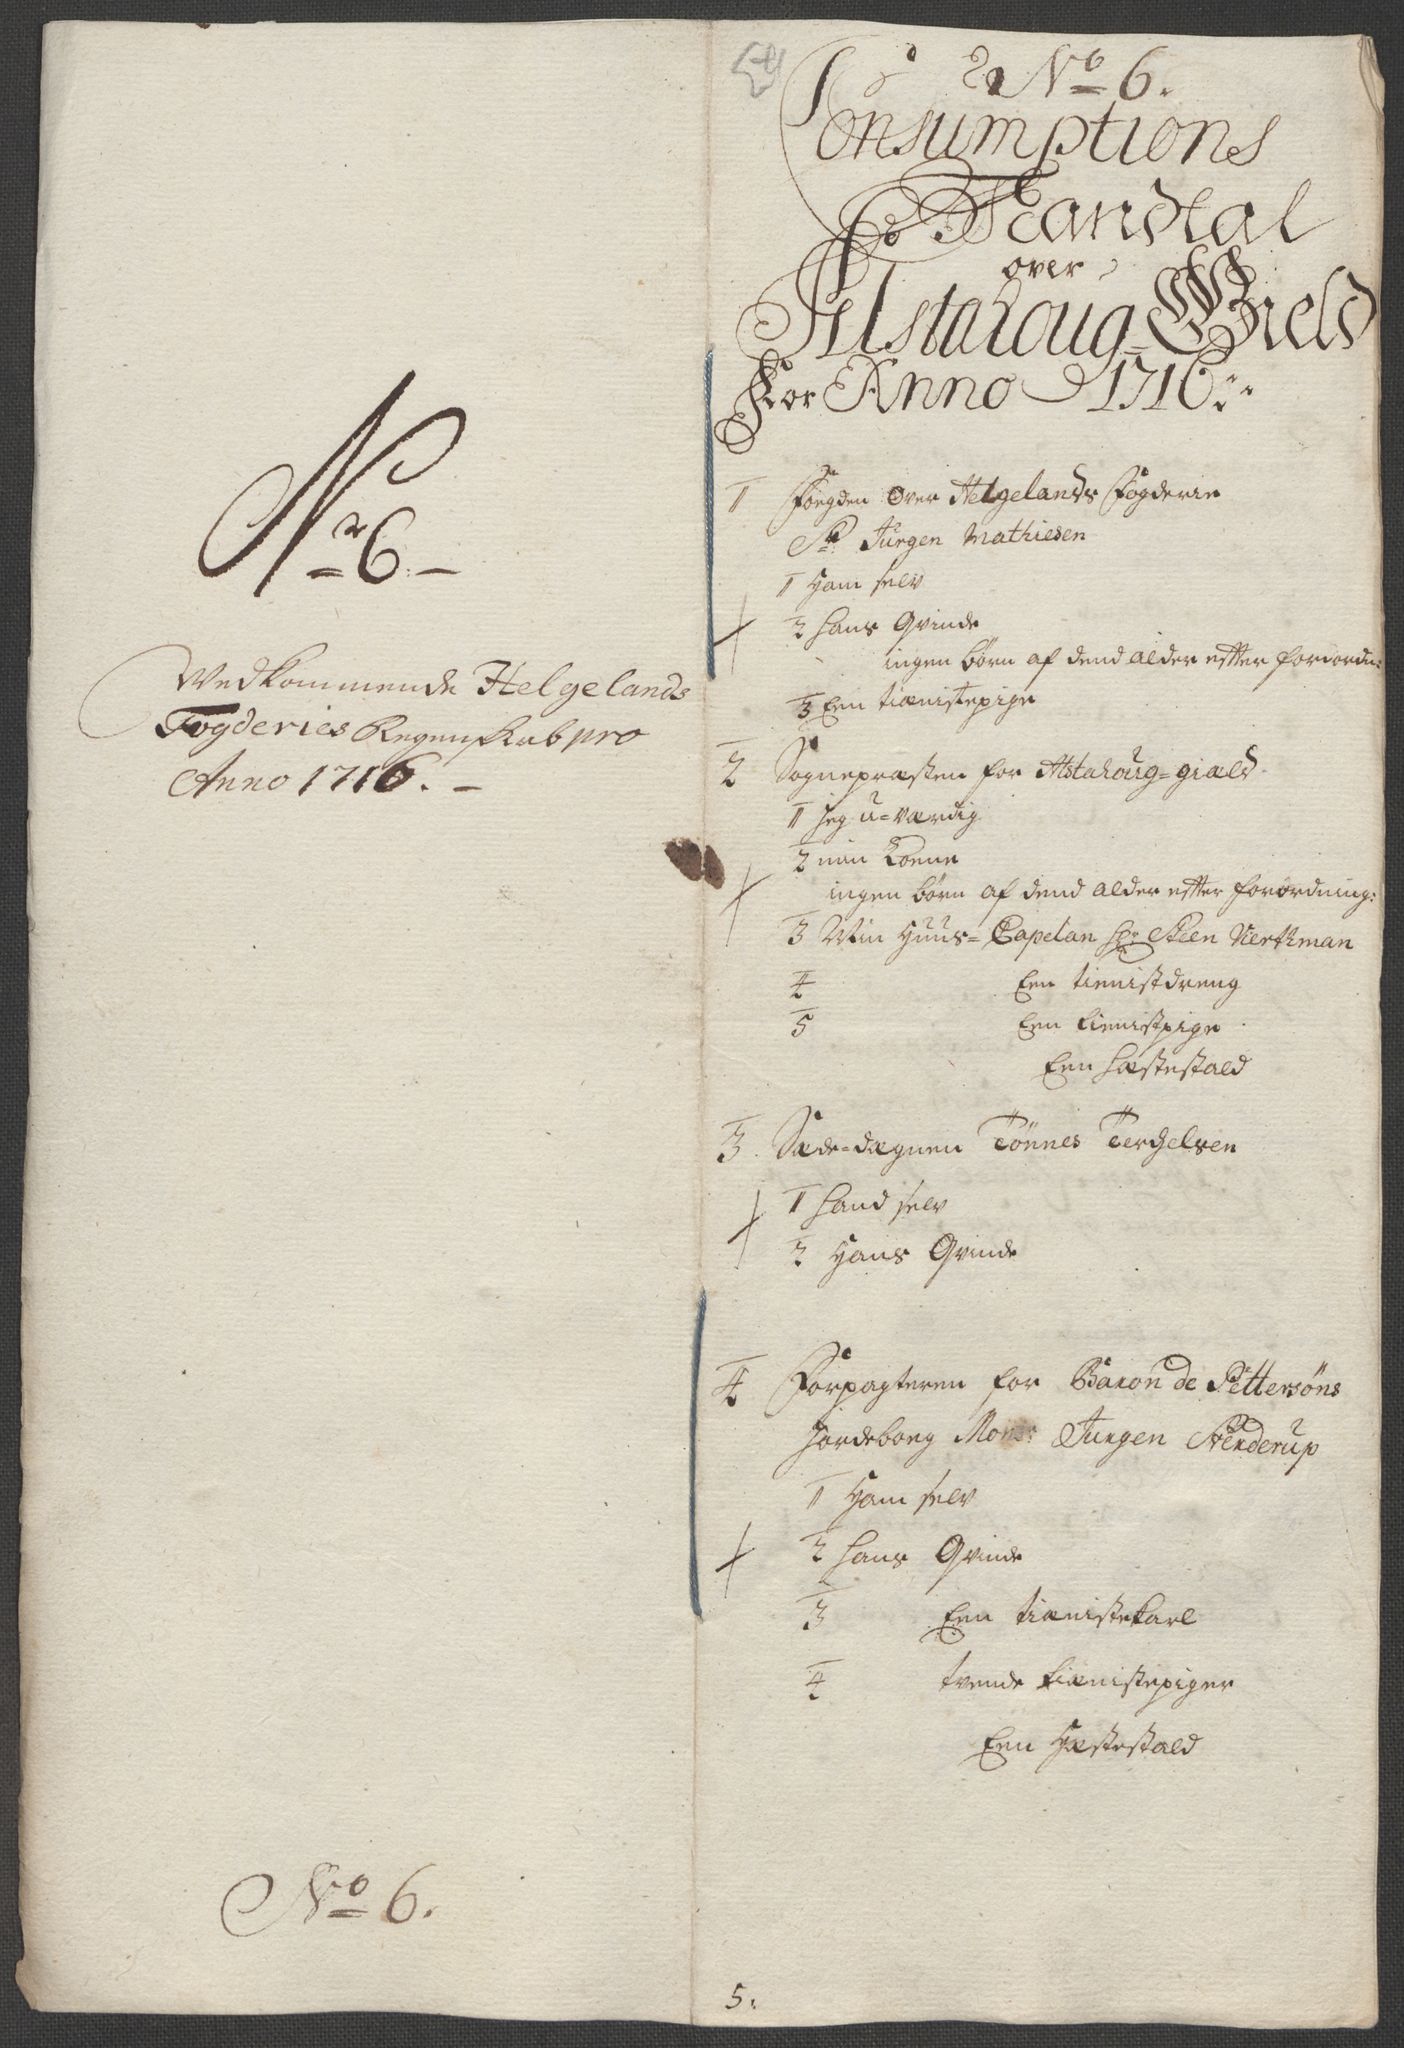 Nr 6.
Vedkommende Helgelands
Fogderies Regenskab pro
Anno 1716.
No 6.
No 6.
Consumptions
Mandtal
over
Alstahoug-Gield
For Anno 1716.
1 Fogden over Helgelands Fogderie
Sr. Jürgen Mathiesen
1 Ham selv
2 hans Qvinde
ingen børn af dend alder efter forordn:
3 Een tienistepige
2 Sognepræsten for Alstahoug-giæld
1 jeg u-værdig
2 min Kone
ingen børn af dend alder efter forordning:
3 Min Huus-Capelan Hr. Steen Verkman
4 Een tienistdreng
5 Een tienistpige
Een hæstestald
3 Sæde-dægnen Tönnes Terchelsen
1 hand selv
2 Hans Qvinde
4 Forpagteren for Baron de Pettersøns
jordebog Mons: Jurgen Stenderup
1 Ham selv
2 hans Qvinde
3 Een tienistekarl
4 tvende tienistepiger
Een Hæstestald
5.